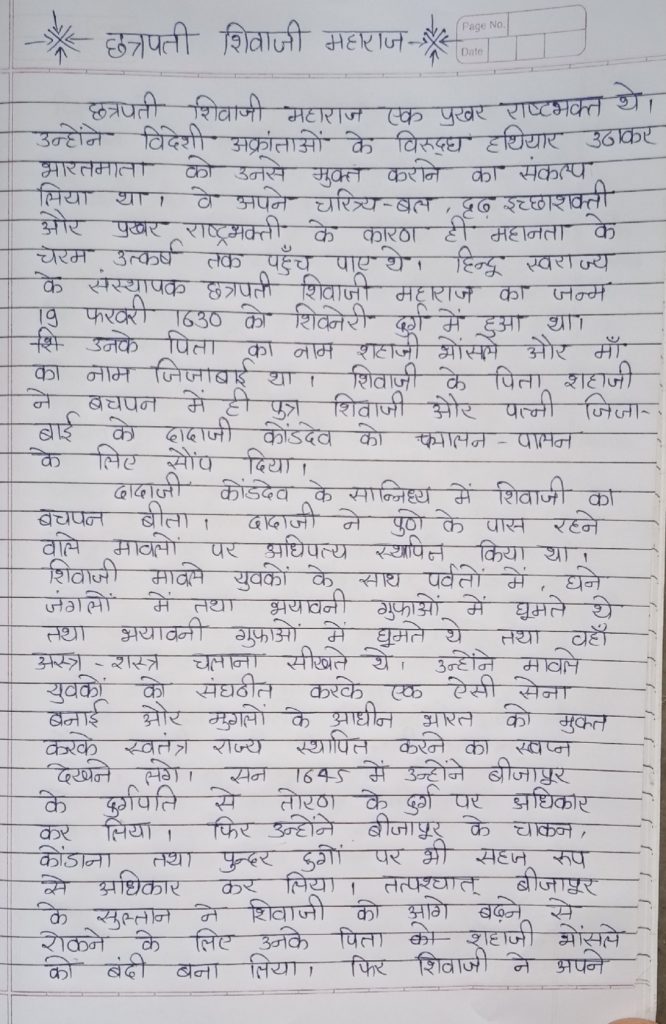 छत्रपती शिवाजी महाराज
Page No.
Date
छत्रपती शिवाजी महाराज एक प्रखर राष्टभक्त थे।
उन्होंने विदेशी अक्रांताओं के विरुद्ध हथियार उठाकर
भारतमाता को उनसे मुक्त कराने का संकल्प
लिया था। वे अपने चरित्र्य-बल, दृढ़ इच्छाशक्ती
और प्रखर राष्ट्रभक्ती के कारण ही महानता के
चरम उत्कर्ष तक पहुँच पाए थे। हिन्दू स्वराज्य
के संस्थापक छत्रपती शिवाजी महाराज का जन्म
19 फरवरी 1630 को शिवनेरी दुर्ग में हुआ था।
उनके पिता का नाम शहाजी भोंसले और माँ
का नाम जिजाबाई था। शिवाजी के पिता शहाजी
ने बचपन में ही पुत्र शिवाजी और पत्नी जिजा-
बाई को दादाजी कोंडदेव को लालन-पालन
के लिए सौंप दिया।
दादाजी कोंडदेव के सान्निध्य में शिवाजी का
बचपन बीता। दादाजी ने पुणे के पास रहने
वाले मावलों पर अधिपत्य स्थापित किया था।
शिवाजी मावले युवकों के साथ पर्वतों में, घने
जंगलों में तथा भयावनी गुफाओं में घूमते थे
तथा भयावनी गुफाओं में घूमते थे तथा वहाँ
अस्त्र-शस्त्र चलाना सीखते थे। उन्होंने मावले
युवकों को संघठीत करके एक ऐसी सेना
बनाई और मुगलों के आधीन भारत को मुक्त
करके स्वतंत्र राज्य स्थापित करने का स्वप्न
देखने लगे। सन 1645 में उन्होंने बीजापूर
के दुर्गपति से तोरण के दुर्ग पर अधिकार
कर लिया। फिर उन्होंने बीजापूर के चाकन,
कोंडाना तथा पुन्दर दुर्गों पर भी सहज रूप
से अधिकार कर लिया। तत्पश्चात् बीजापूर
के सुल्तान ने शिवाजी को आगे बढ़ने से
रोकने के लिए उनके पिता शहाजी भोंसले
को बंदी बना लिया। फिर शिवाजी ने अपने